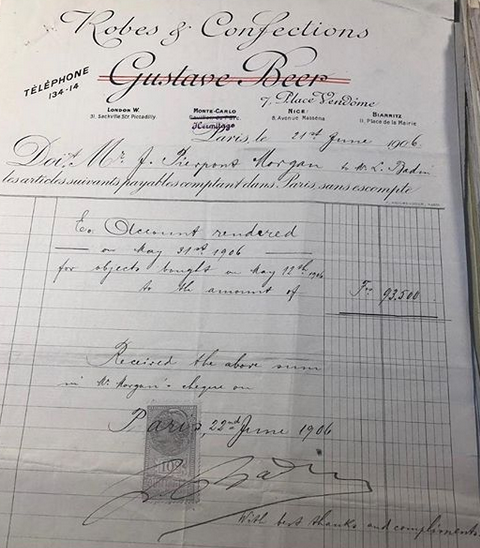 Robes & Confections
Gustave Beer
TÉLÉPHONE
134-14
7, Place Vendôme
LONDON W.
31, Sackville Str Piccadilly
MONTE-CARLO
Hermitage
NICE
8, Avenue Masséna
BIARRITZ
11, Place de la Mairie
Paris, le 21st June 1906
Doit Mr J. Pierpont Morgan to Mr L. Badin
les articles suivants payables comptant dans Paris sans escompte
To Account rendered
on May 31st 1906
for objects bought on May 12th 1906
to the amount of Frs 93,500
Received the above sum
in Mr Morgan's cheque on
Paris, 22nd June 1906
10c
With best thanks and compliments